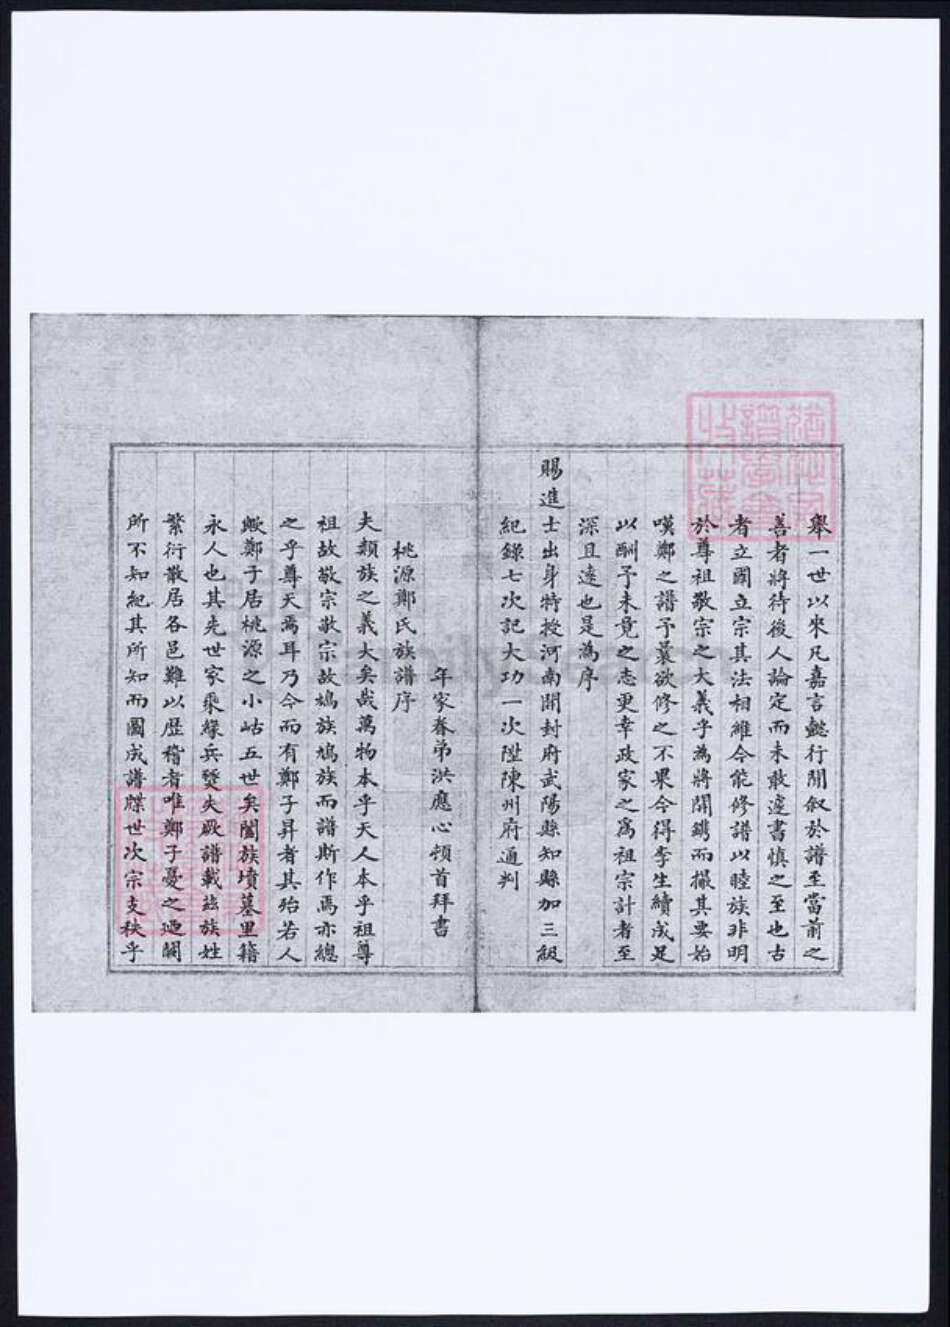 舉一世以來凡嘉言懿行間叙於譜至當前之
善者將待後人論定而未敢遽書慎之至也古
者立國立宗其法相維今能修譜以睦族非明
於尊祖敬宗之大義乎為將開鐫而撮其要始
嘆鄭之譜予曩欲修之不果今得李生續成足
以酬予未竟之志更幸政家之為祖宗計者至
深且遠也是為序
賜進士出身特授河南開封府武陽縣知縣加三級
紀錄七次記大功一次陞陳州府通判
年家眷弟洪應心頓首拜書
桃源鄭氏族譜序
夫類族之義大矣哉萬物本乎天人本乎祖尊
祖故敬宗敬宗故鳩族鳩族而譜斯作焉亦總
之乎尊天焉耳乃今而有鄭子昇者其殆若人
歟鄭子居桃源之小岵五世矣閤族墳墓里籍
永人也其先世家乘緣兵燹失厥譜載茲族姓
繁衍散居各邑難以歷稽者唯鄭子憂之迺闕
所不知紀其所知而圖成譜牒世次宗支秩乎